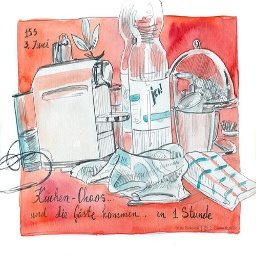 153
3. Juni
ja!
Küchen-Chaos..
und die Gäste kommen.. in 1 Stunde